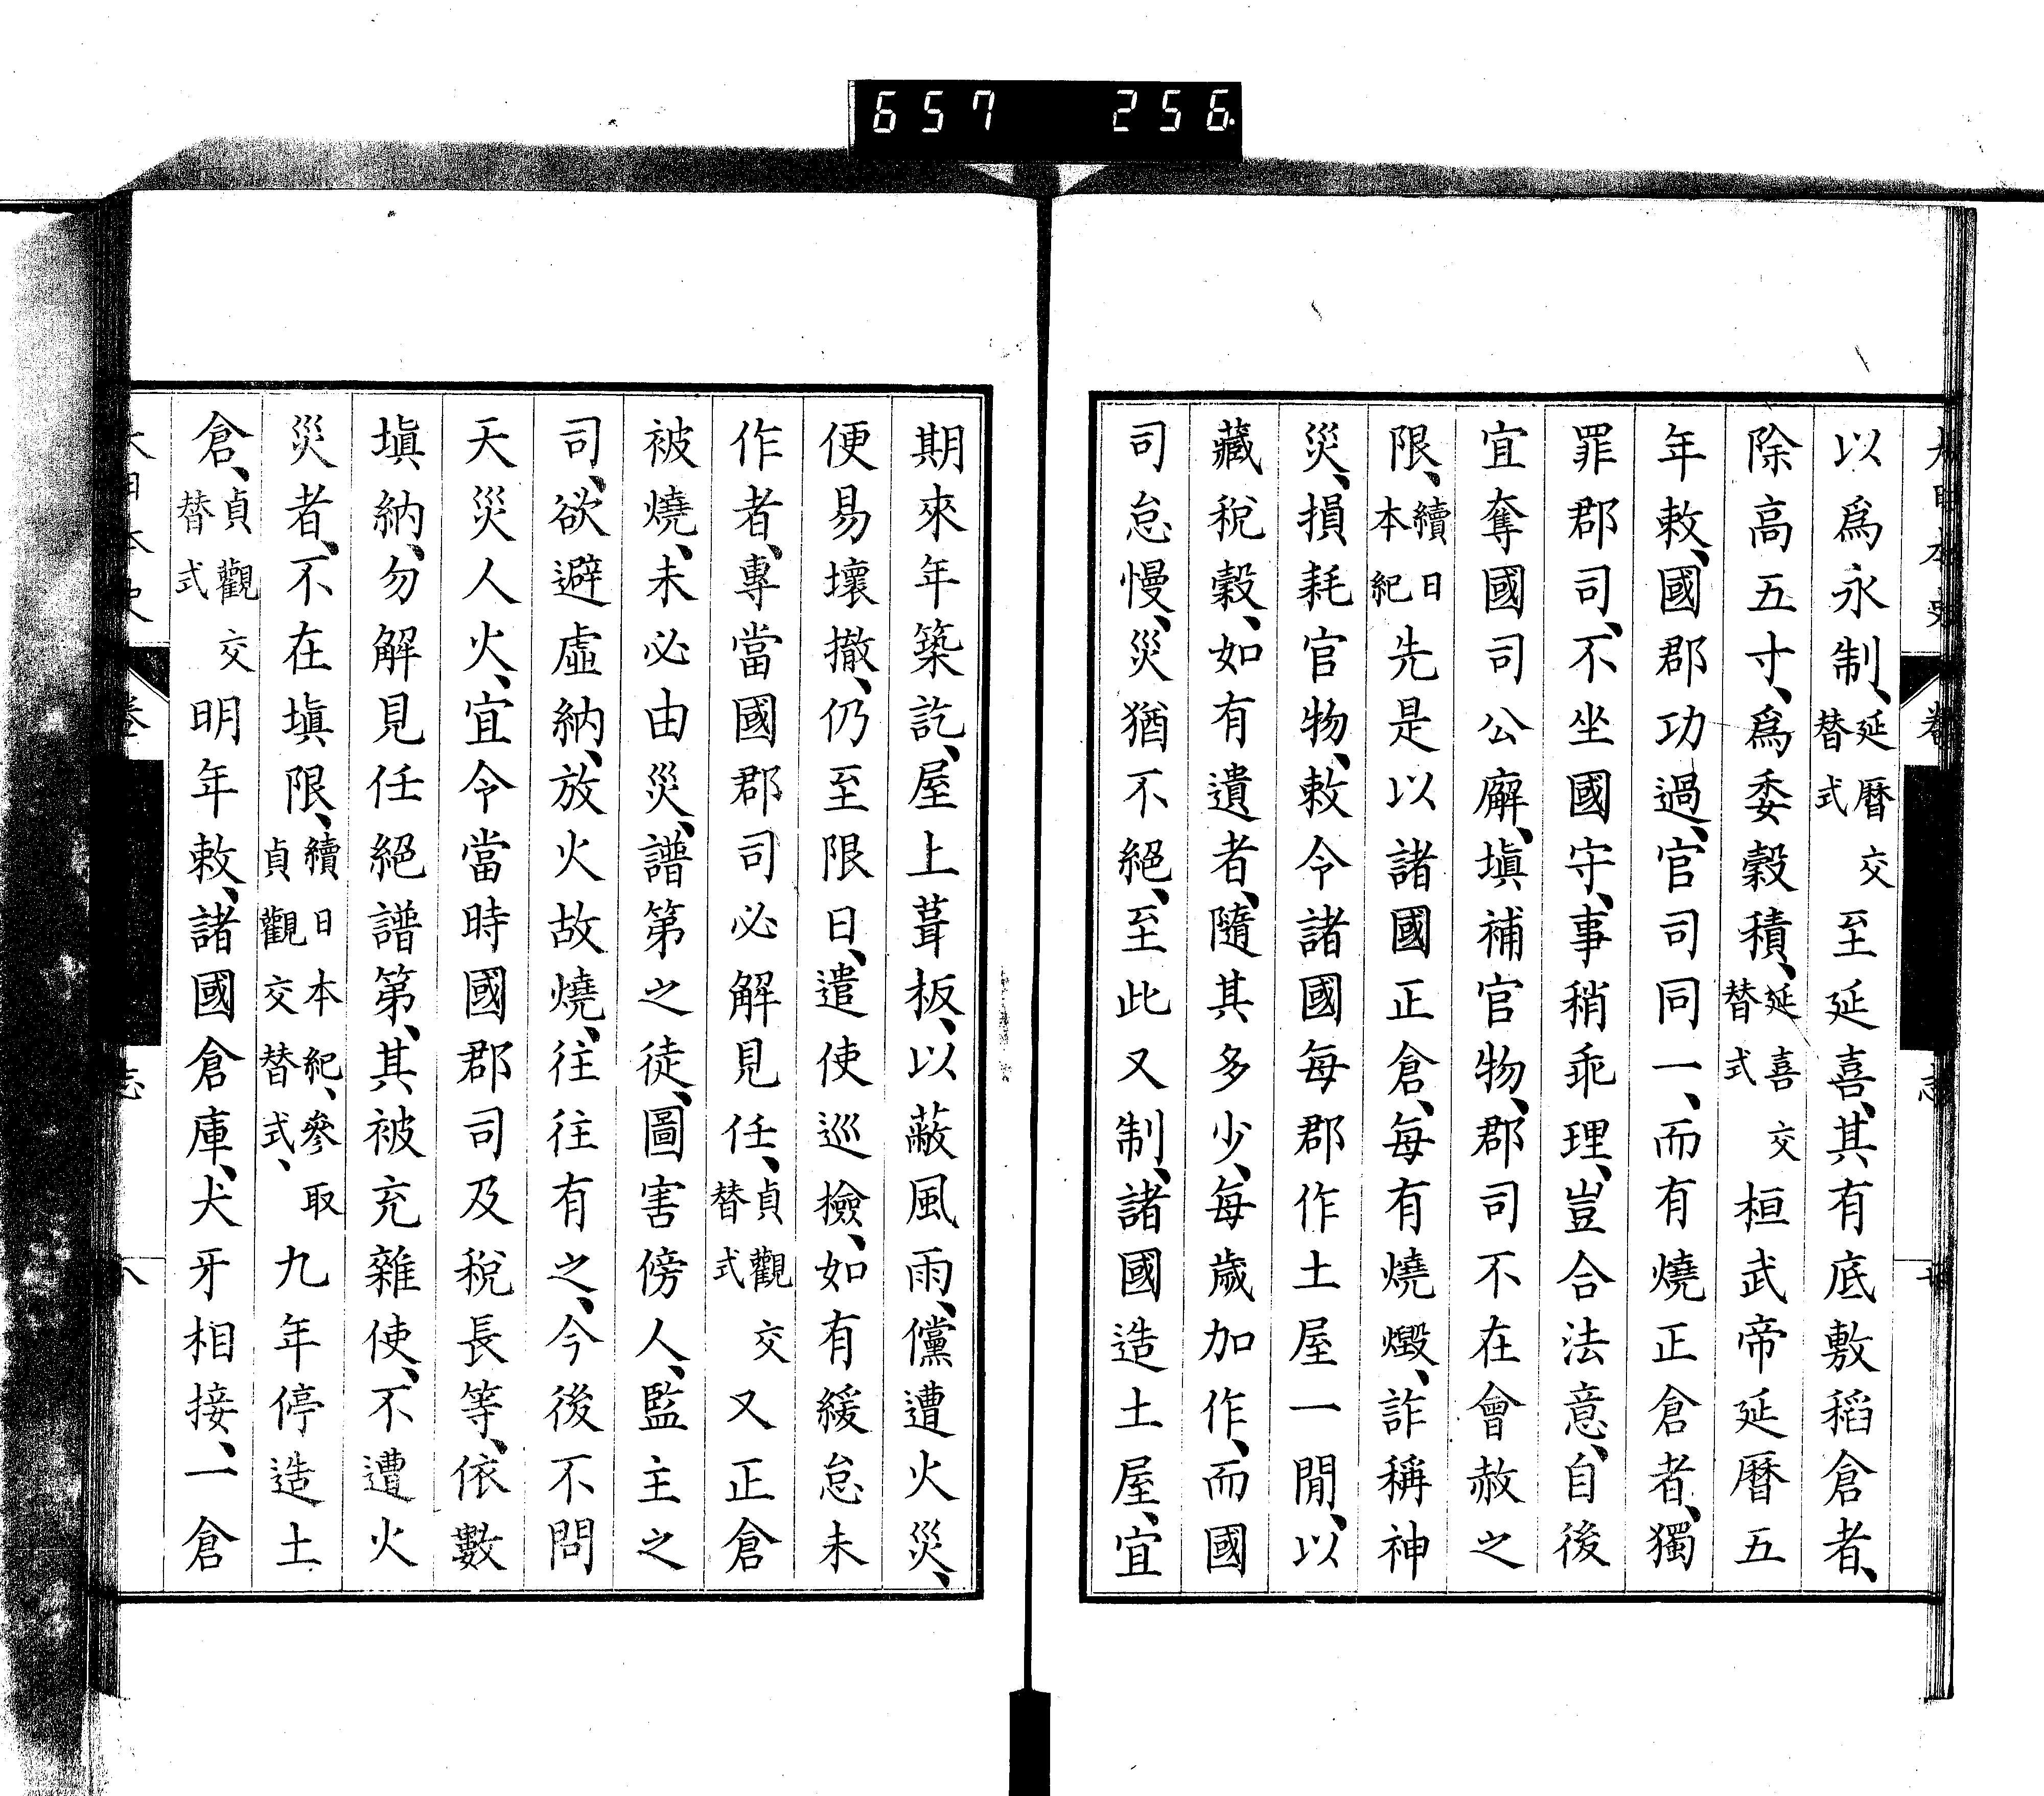 657 256
以爲永制、延曆交替式至延喜、其有底敷稻倉者、
除高五寸、爲委穀積、延喜交替式桓武帝延曆五
年敕、國郡功過、官司同一、而有燒正倉者、獨
罪郡司、不坐國守、事稍乖理、豈合法意、自後
宜奪國司公廨、塡補官物、郡司不在會赦之
限、續日本紀先是以諸國正倉、每有燒燬、詐稱神
災、損耗官物、敕令諸國每郡作土屋一閒、以
藏稅穀、如有遺者、隨其多少、每歲加作、而國
司怠慢、災猶不絕、至此又制、諸國造土屋、宜
期來年築訖、屋上葺板、以蔽風雨、儻遭火災、
便易壞撤、仍至限日、遣使巡撿、如有緩怠未
作者、專當國郡司必解見任、貞觀交替式又正倉
被燒、未必由災、譜第之徒、圖害傍人、監主之
司、欲避虛納、放火故燒、往往有之、今後不問
天災人火、宜令當時國郡司及稅長等、依數
塡納、勿解見任絕譜第、其被充雜使、不遭火
災者、不在塡限、續日本紀、參取貞觀交替式、九年停造土
倉、貞觀交替式明年敕、諸國倉庫、犬牙相接、一倉